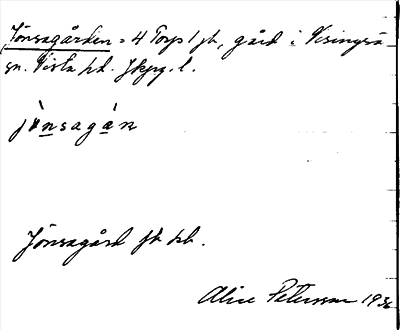 Jönsagården = 4 Torp 1 jb, gård i Visingsö
sn. Vista hd. Jkpg. l.
jònsagán
Jönsagård jb hd.
Alice Petersson 1936